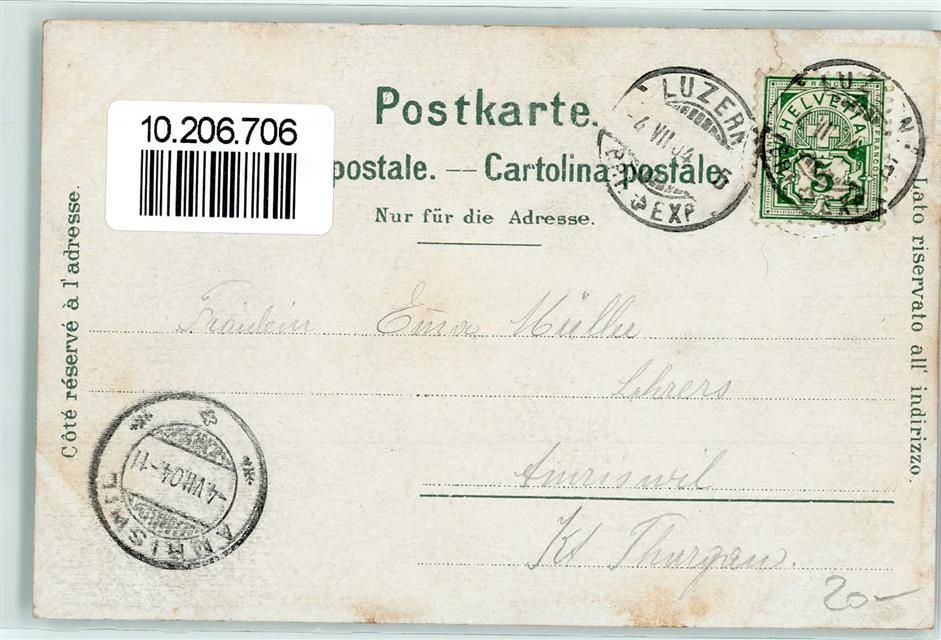 Postkarte.
10.206.706
postale. — Cartolina postale
Nur für die Adresse.
Côté réservé à l'adresse.
Lato riservato all' indirizzo.
LUZERN
-4.VII.04 - 5
BRF. EXP.
HELVETIA
FRANCO
5
LUZERN
Fräulein Emma Müller
Lehrers
Amriswil
Kt Thurgau.
AMRISWIL
-4.VII.04-11
20-